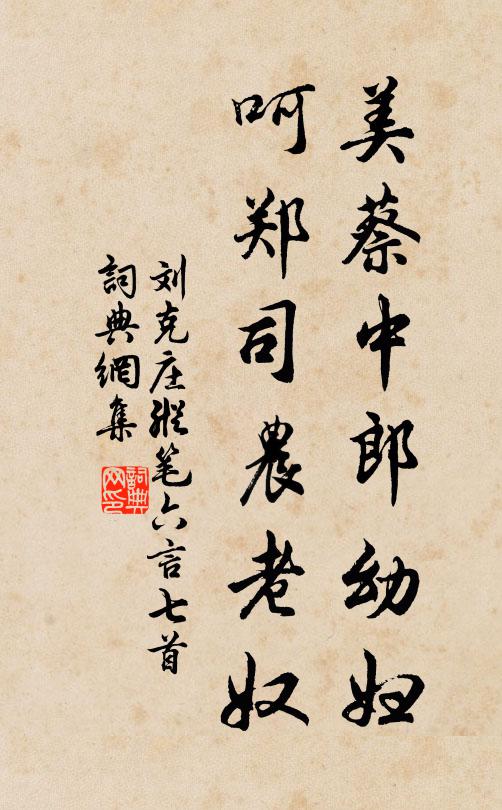 美蔡中郎幼妇
呵郑司农老奴
刘克庄纵笔六言七首
詞典網集
詞典網印